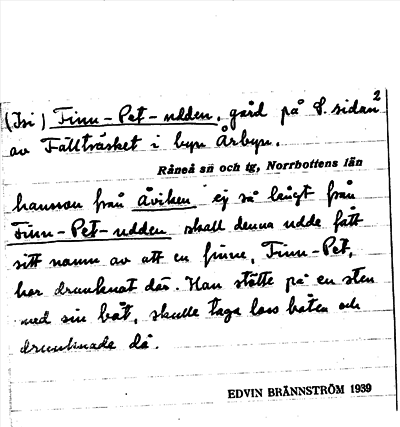 2
(Isi) Finn-Pet-udden, gård på S. sidan
av Fällträsket i byn Årbyn.
Råneå sn och tg, Norrbottens län
hansson från Åviken ej så långt från
Finn-Pet-udden skall denna udde fått
sitt namn av att en finne, Finn-Pet,
har drunknat där. Han stötte på en sten
med sin båt, skulle taga loss båten och
drunknade då.
EDVIN BRÄNNSTRÖM 1939